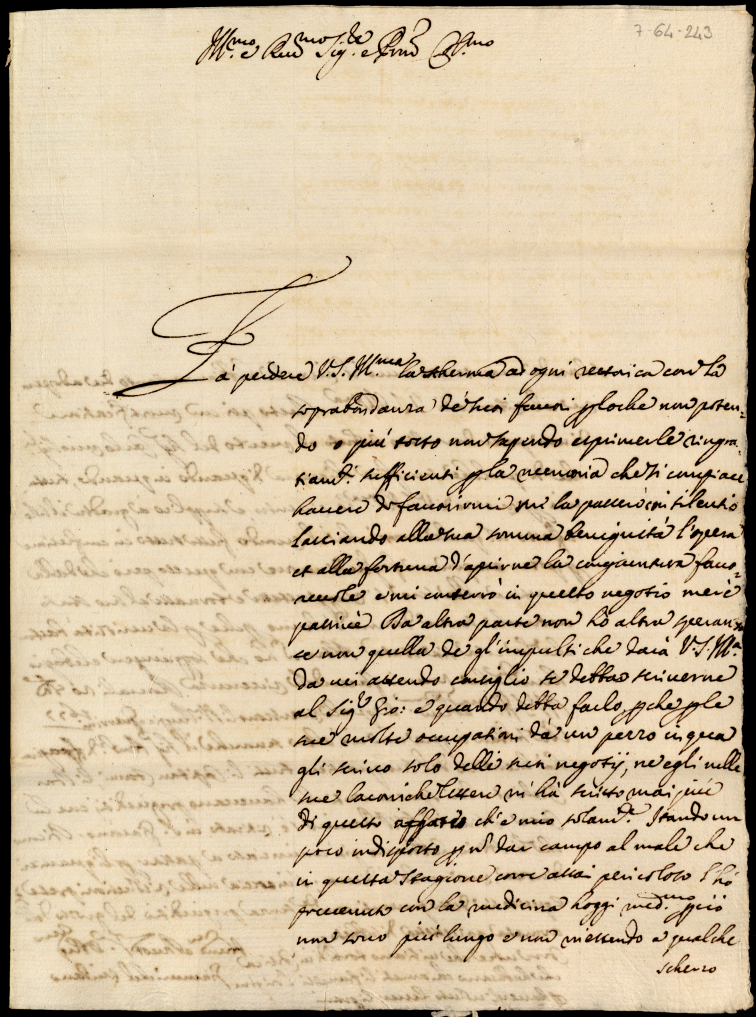 7-64-243
Ill.mo e Rev.mo Sig.re e P.rone Col.mo
Fà perdere V.S. Ill.ma la scherma ad ogni rettorica con la
soprabondanza de suoi favori p loche non poten=
do o più tosto non sapendo esprimerle ringra=
tiam.ti sufficienti p la memoria che si compiace
havere di favorirmi me la passerò con silentio
lasciando alla sua somma benignità l'opera
et alla fortuna d'aprirne la congiuntura favo=
revole e mi conterrò in questo negotio merè
passivè Da altra parte non hò altra speranza
se non quella de gl'impulsi che darà V.S. Ill.ma
da cui attendo consiglio se debba scriverne
al Sig.r Gio: e quando debba farlo, p che p le
sue molte occupationi da un pezzo in qua
gli scrivo solo delli suoi negotij, ne egli nelle
sue laconiche lettere m'hà scritto mai più
di questo affare ch'è mio solam.te Stando un
poco indisposto p nō dar campo al male che
in questa stagione corre assai pericoloso l'hò
prevenuto con la medicina hoggi med.mo p ciò
non sono più lungo e non mettendo a qualche
scherzo